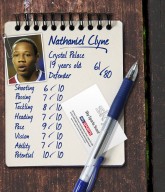 Nathaniel Clyne
Crystal Palace
19 years old
Defender
61/80
Shooting 6/10
Passing 7/10
Tackling 7/10
Heading 7/10
Pace 9/10
Vision 7/10
Ability 7/10
Potential 10/10